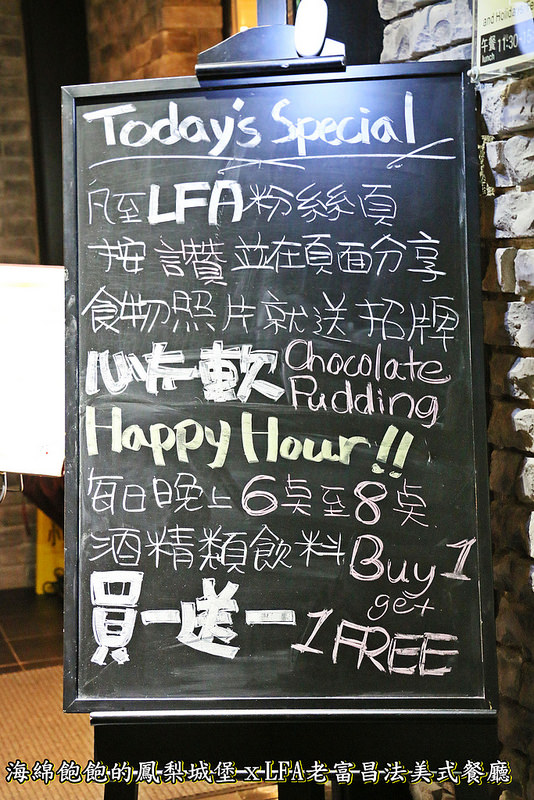 and Holiday
午餐 11:30
lunch
Today's Special
凡至LFA粉絲頁
按讚並在頁面分享
食物照片就送招牌
心卡軟 Chocolate Pudding
Happy Hour!!
每日晚上6点至8点
酒精類飲料 Buy 1
get
買一送一 1 FREE
海綿飽飽的鳳梨城堡 x LFA老富昌法美式餐廳